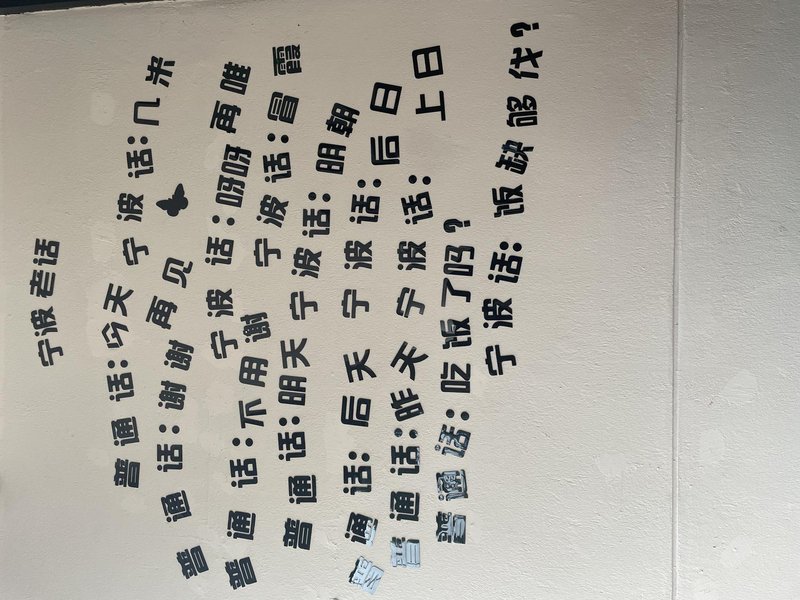 宁波老话
普通话:今天 宁波话:几米
普通话:谢谢 再见 宁波话:呀呀 再唯
普通话:不用谢 宁波话:冒霞
普通话:明天 宁波话:明朝
普通话:后天 宁波话:后日
普通话:昨天 宁波话:上日
普通话:吃饭了吗?
宁波话:饭缺够伐?